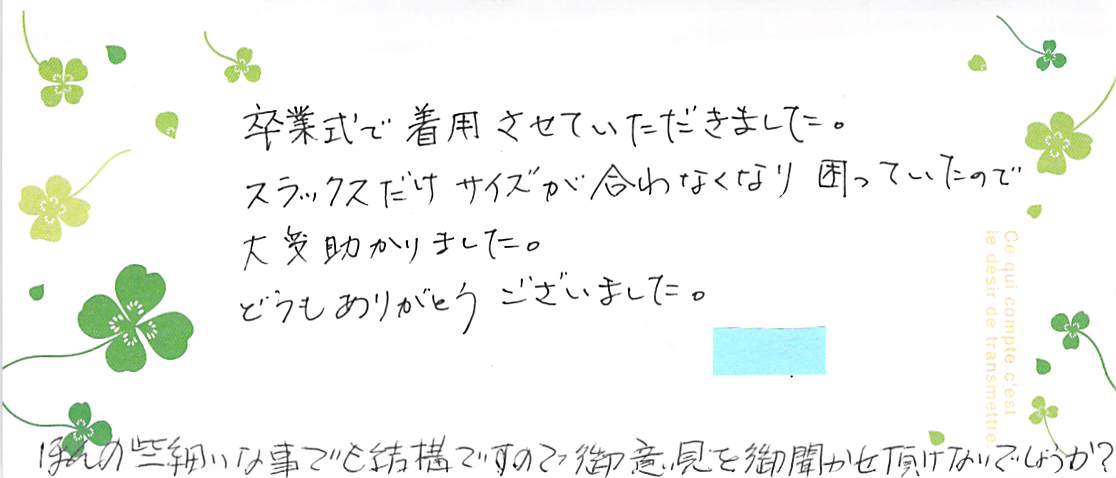 卒業式で着用させていただきました。
スラックスだけサイズが合わなくなり困っていたので
大変助かりました。
どうもありがとうございました。
Ce qui compte c'est
le désir de transmettre.
ほんの些細いな事でも結構ですので御意見を御聞かせ頂けないでしょうか?